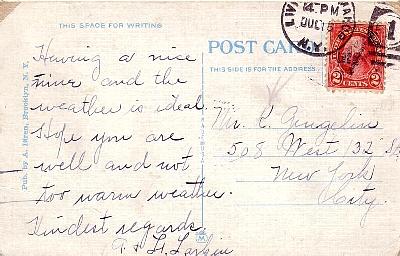 THIS SPACE FOR WRITING
Having a nice
time and the
weather is ideal.
Hope you are
well and not
too warm weather.
Kindest regards.
Pub. by A. Brooklyn, N. Y.
POST CARD
THIS SIDE IS FOR THE ADDRESS
4-PM
N.Y.
1
2 CENTS 2
Mr. K. Angelin
508 West 132 St
New York
City.